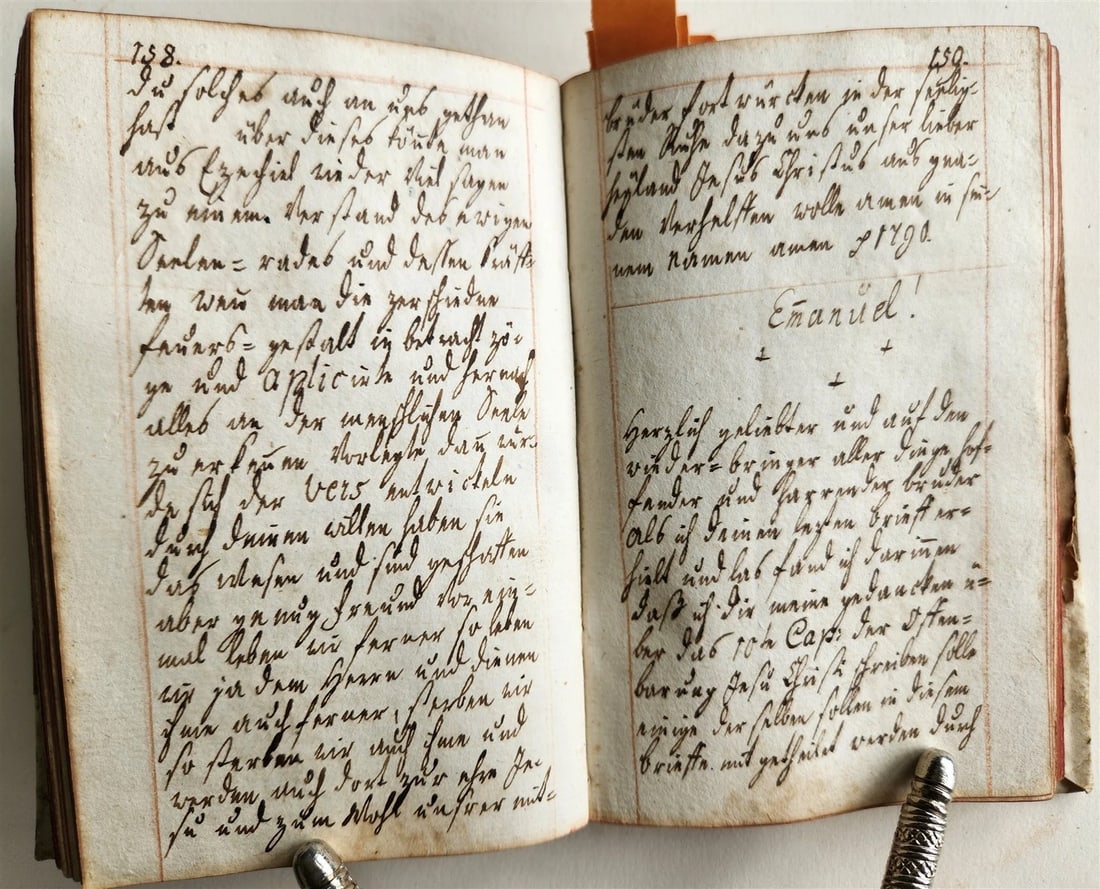 158.
du solches auch an uns gethan
hast über dieses könte man
aus Ezechiel wieder viel sagen
zu einem Verstand des ewigen
Seelen= rades und dessen Kräff=
ten wen man die zerschiedne
feuers= gestalt in betracht zö=
ge und aplicirte und hernach
alles an der menschlichen Seele
zu erkennen Vorlegte dan wür=
de sich der Vers entwickeln
durch deinen willen haben sie
das wesen und sind geschaffen
aber genug Freund vor ein=
mal leben wir ferner so leben
wir ja dem Herrn und dienen
ihme auch ferner, sterben wir
so sterben wir auch ihme und
werden auch dort zur ehre Je=
su und zum Wohl unsrer mit=
159.
brüder fortwürcken in der seelig=
sten Ruhe dazu uns unser lieber
heyland Jesus Christus aus gna=
den Verhelffen wolle amen in sei=
nem namen amen 1790.
Emanuel!
+ +
+
Herzlich geliebter und auf den
wieder= bringer aller dinge hof=
fender und harrender bruder
als ich deinen lezten brieff er=
hielt und las fand ich darinnen
daß ich dir meine gedancken ü=
ber das 10te Cap: der Offen=
barung Jesu Christi schreiben solle
einige der selben sollen in diesem
brieffe mit getheilet werden durch